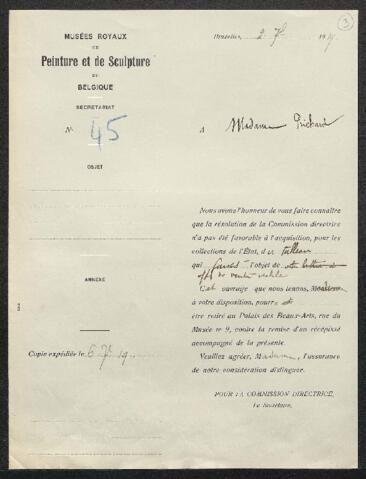 3
MUSÉES ROYAUX
DE
Peinture et de Sculpture
DE
BELGIQUE
SECRÉTARIAT
N° 45
OBJET
ANNEXE
Copie expédiée le 6 7b 19
Bruxelles, 2 7b 191
A Madame Prichard
Nous avons l'honneur de vous faire connaître
que la résolution de la Commission directrice
n'a pas été favorable à l'acquisition, pour les
collections de l'État, d'un tableau
qui faisait l'objet de
offre de vente
Cet ouvrage que nous tenons, Madame
à votre disposition, pourra
être retiré au Palais des Beaux-Arts, rue du
Musée n° 9, contre la remise d'un récépissé
accompagné de la présente.
Veuillez agréer, Madame, l'assurance
de notre considération distinguée.
POUR LA COMMISSION DIRECTRICE,
Le Secrétaire,